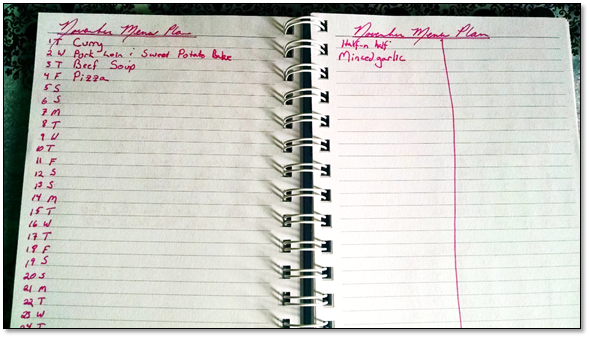 November Menu Plan
1 T Curry
2 W Pork Loin & Sweet Potato Bake
3 T Beef Soup
4 F Pizza
5 S
6 S
7 M
8 T
9 W
10 T
11 F
12 S
13 S
14 M
15 T
16 W
17 T
18 F
19 S
20 S
21 M
22 T
23 W
24 T
November Menu Plan
Half-n half
Minced garlic